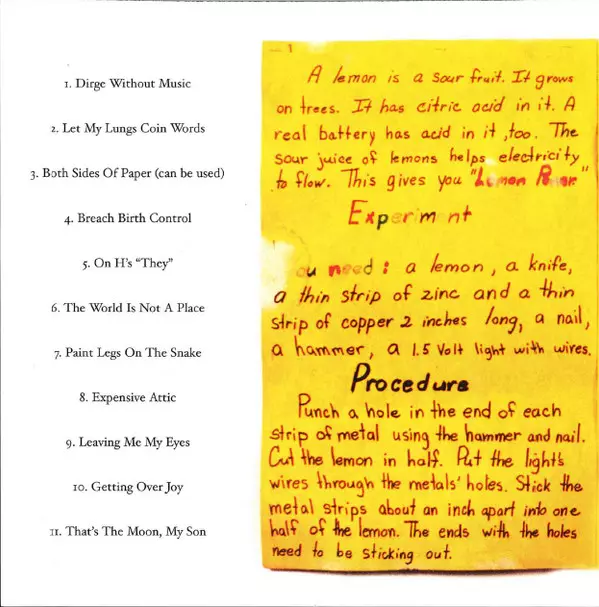 1. Dirge Without Music
2. Let My Lungs Coin Words
3. Both Sides Of Paper (can be used)
4. Breach Birth Control
5. On H's “They”
6. The World Is Not A Place
7. Paint Legs On The Snake
8. Expensive Attic
9. Leaving Me My Eyes
10. Getting Over Joy
11. That's The Moon, My Son
1
A lemon is a sour fruit. It grows
on trees. It has citric acid in it. A
real battery has acid in it, too. The
sour juice of lemons helps electricity
to flow. This gives you "Lemon Power"
Experiment
ou need : a lemon, a knife,
a thin strip of zinc and a thin
strip of copper 2 inches long, a nail,
a hammer, a 1.5 Volt light with wires.
Procedure
Punch a hole in the end of each
strip of metal using the hammer and nail.
Cut the lemon in half. Put the light's
wires through the metals' holes. Stick the
metal strips about an inch apart into one
half of the lemon. The ends with the holes
need to be sticking out.